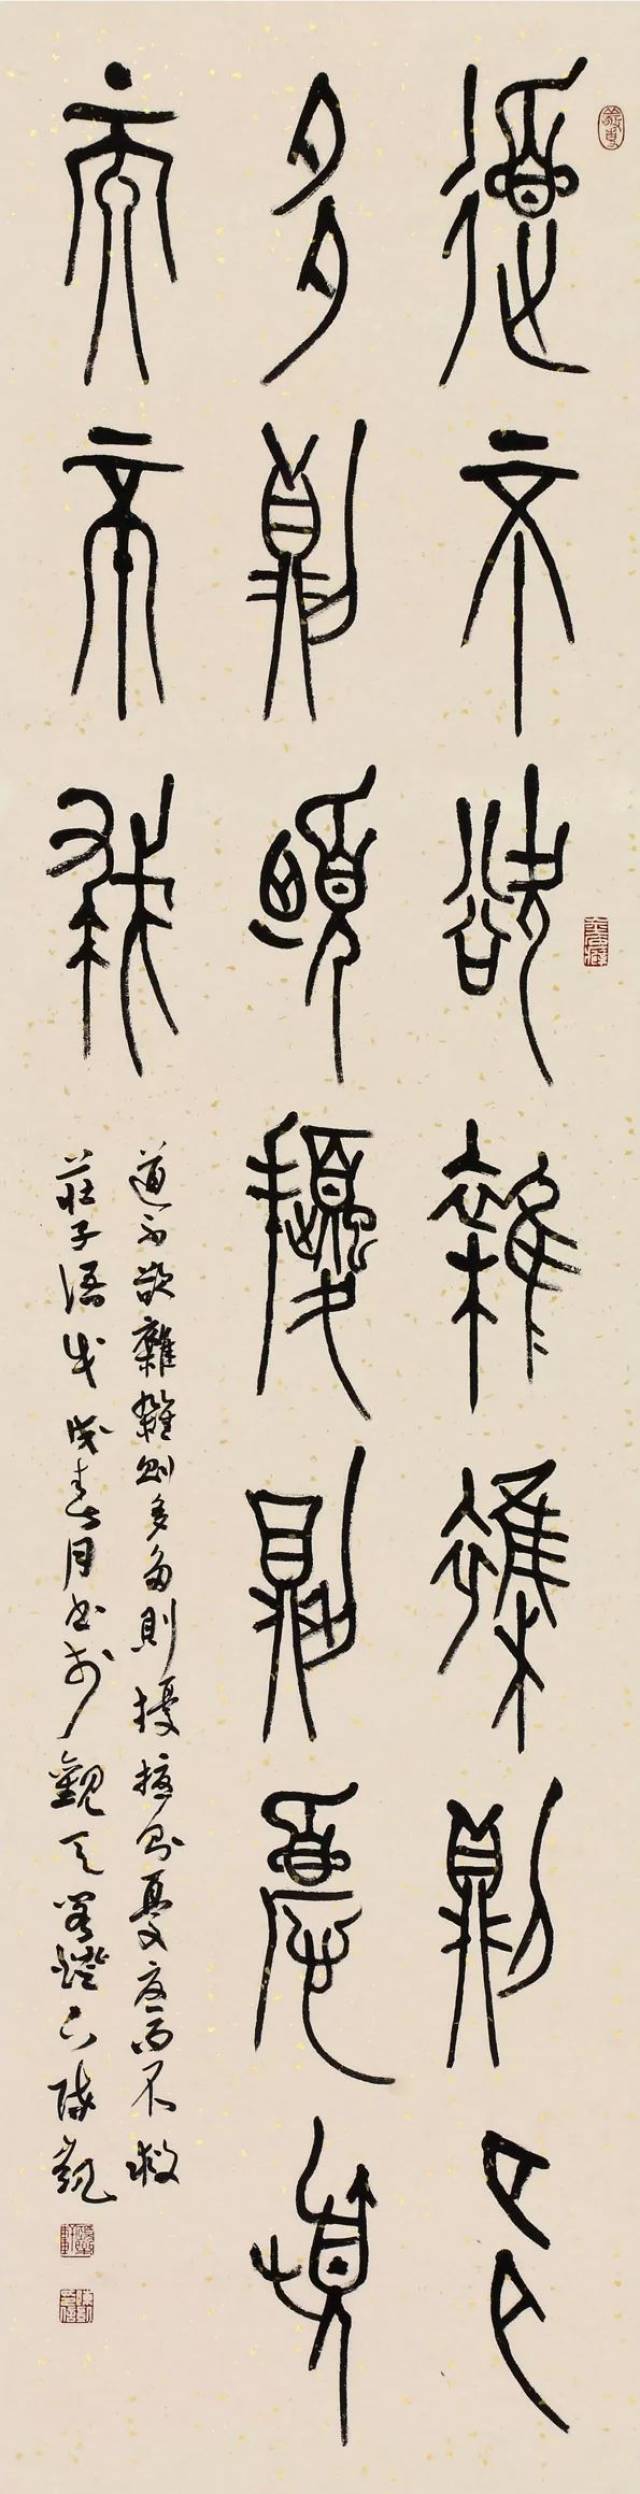 道不欲雜雜則多
多則擾擾則憂憂
而不救
道不欲雜雜則多多則擾擾則憂憂而不救
莊子語戊戌春月書於觀天閣燈下陳凱